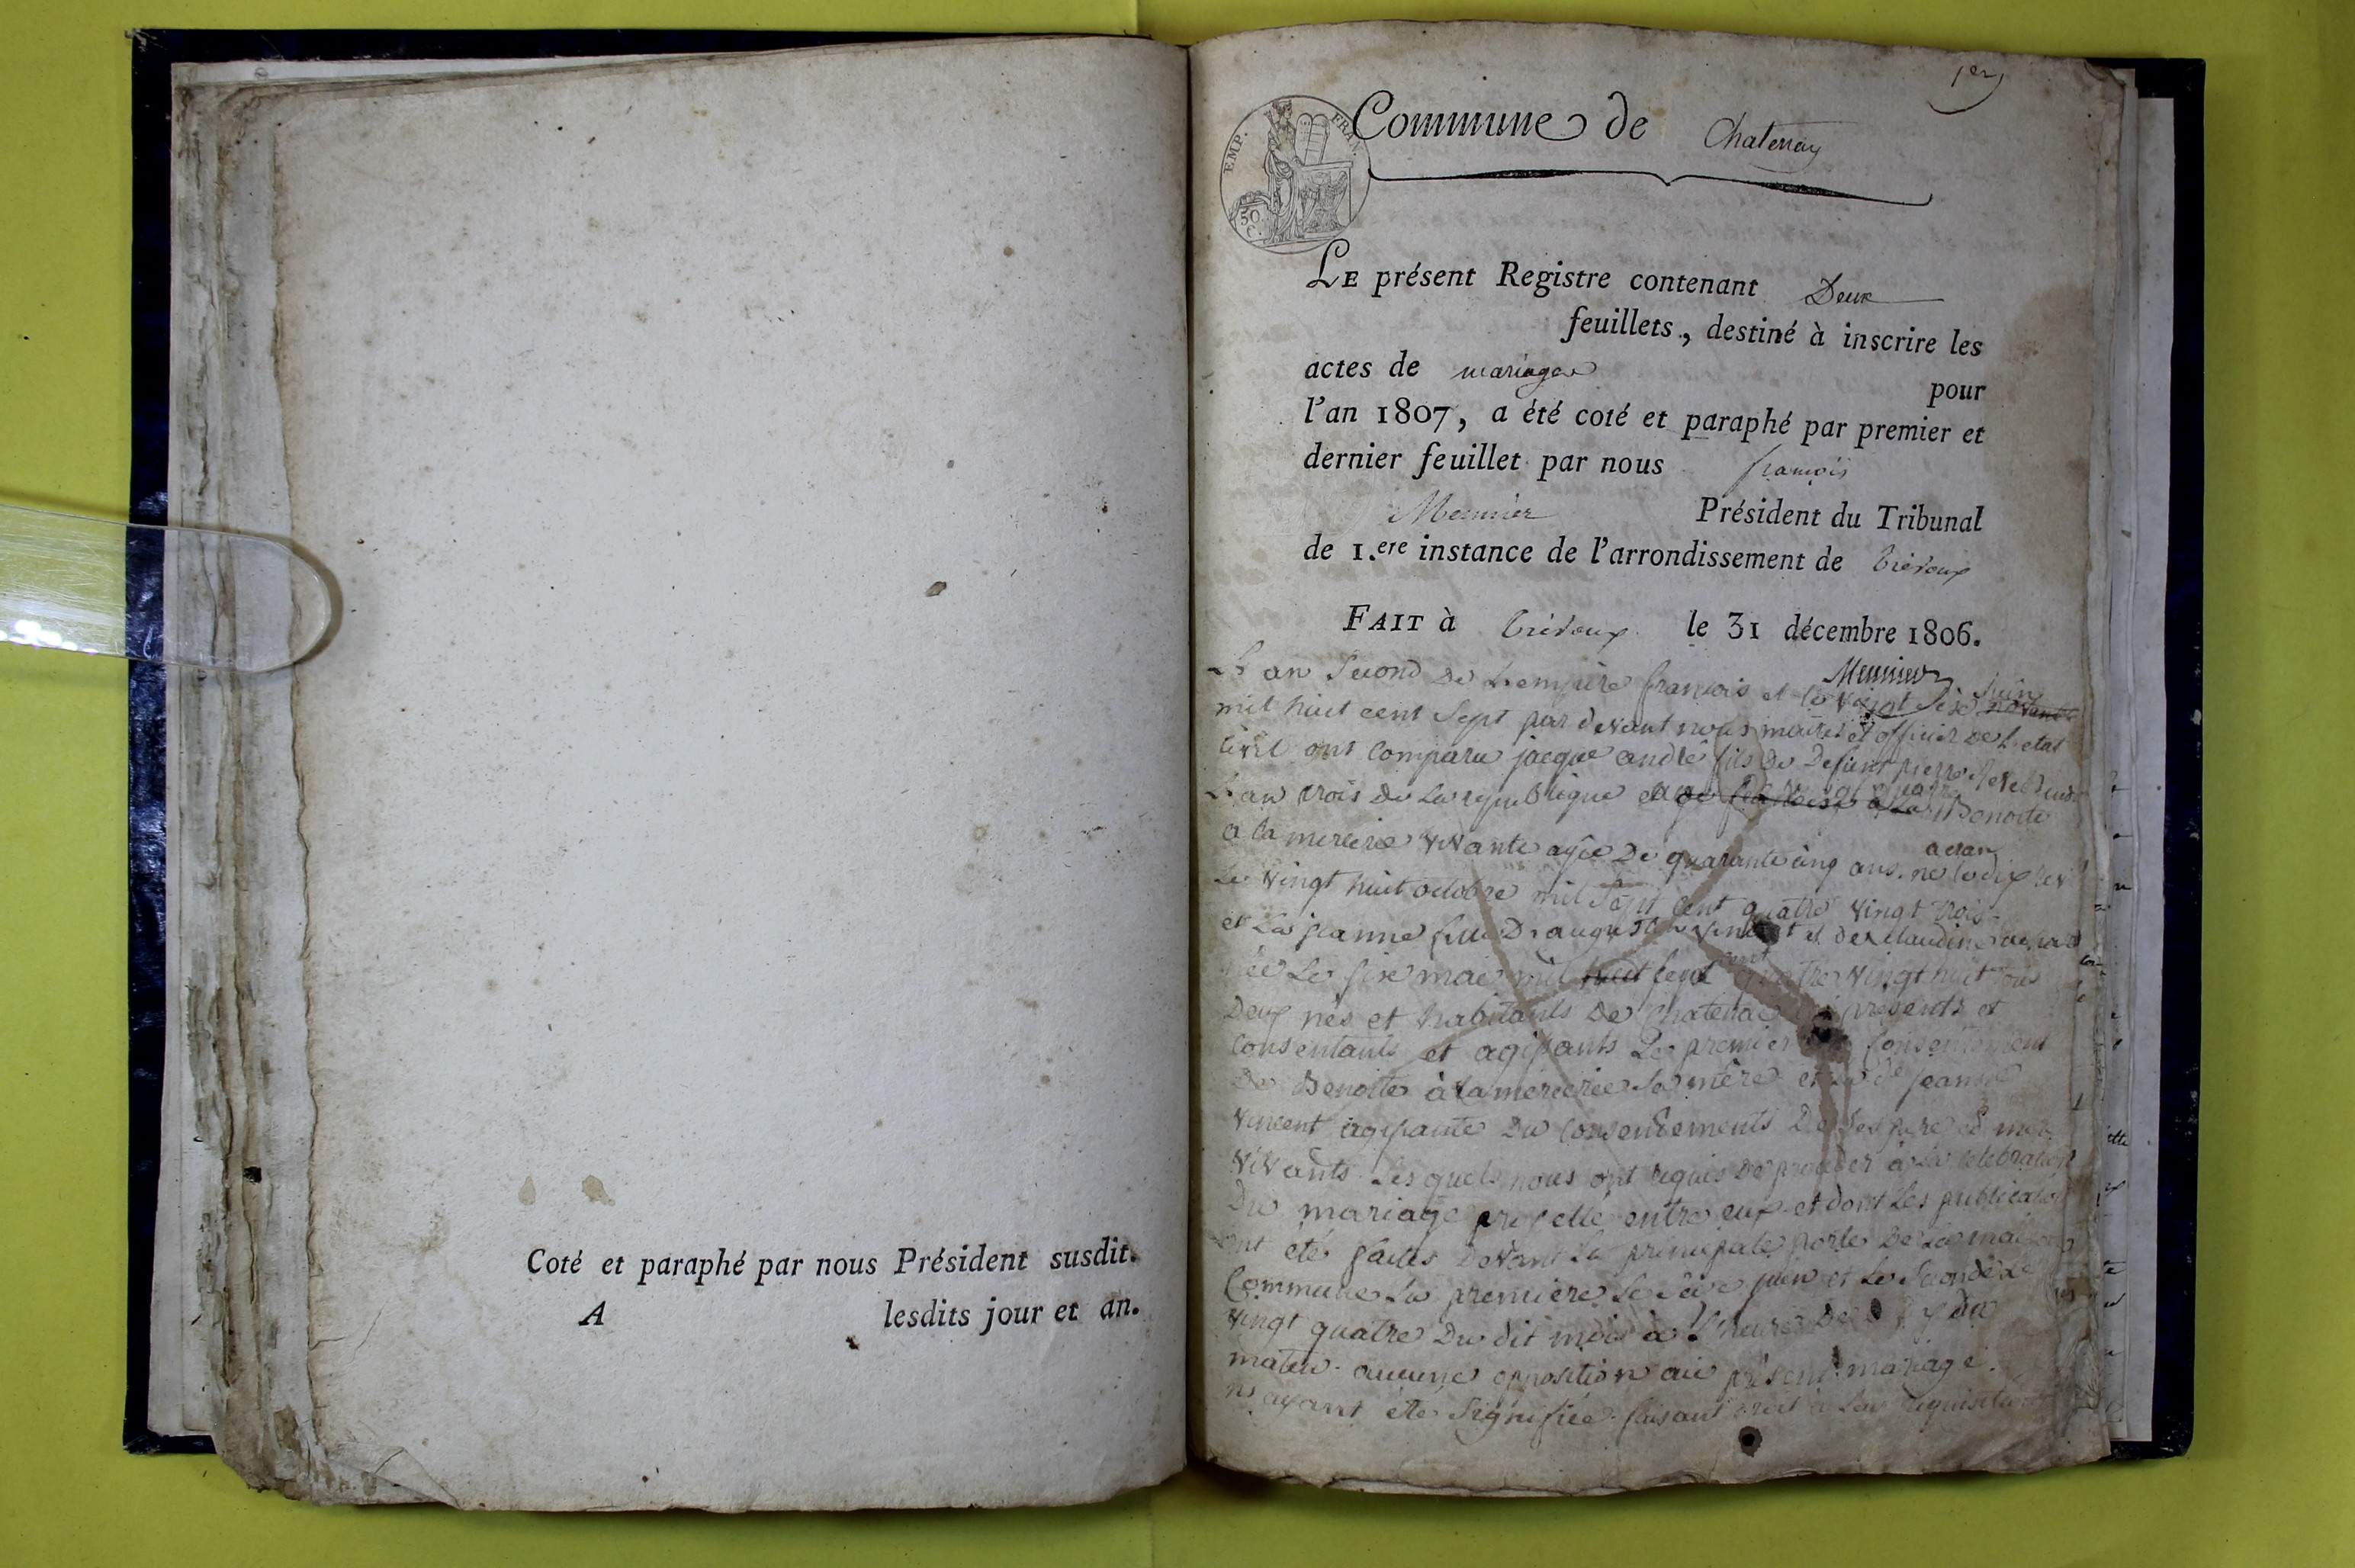 Coté et paraphé par nous Président susdit.
A lesdits jour et an.
1er
EMP. FRAN.
50
C.
Commune de Chatenay
LE présent Registre contenant Deux
feuillets, destiné à inscrire les
actes de mariage pour
l'an 1807, a été coté et paraphé par premier et
dernier feuillet par nous françois
Meunier Président du Tribunal
de 1.ere instance de l'arrondissement de trévoux
FAIT à trévoux le 31 décembre 1806.
Meunier
L'an Second de L'empire francois et le vingt Sise juin
mil huit cent Sept par devant nous maire et officier de L'etat
civil ont comparu jacque andré fils de Defunt pierre
L'an trois de La republique Benoite
a la mercirie vivante agée de quarante cinq ans. né
Le vingt huit octobre mil Sept cent quatre vingt trois
et La jeanne fille D'augustin vincent et de claudine
née Le sixe mai mil cent quatre vingt huit tous
Deux nés et habitants de Chatenae presents et
Consentants et agissants Le premier consentement
de Benoite à la mercirie Sa mère et La de jeanne
vincent agissante du consentements De Ses pere et mere
vivants. Les quels nous ont requis de proceder à La celebration
Du mariage projetté entre eux et dont Les publication
ont été faites devant La principale porte de La maison
Commune La premiere Le Sèse juin et La Seconde Le
vingt quatre Du dit mois à L'heure de
matin. aucune opposition au présent mariage.
n'ayant été Signifiée faisant droit à La requisition